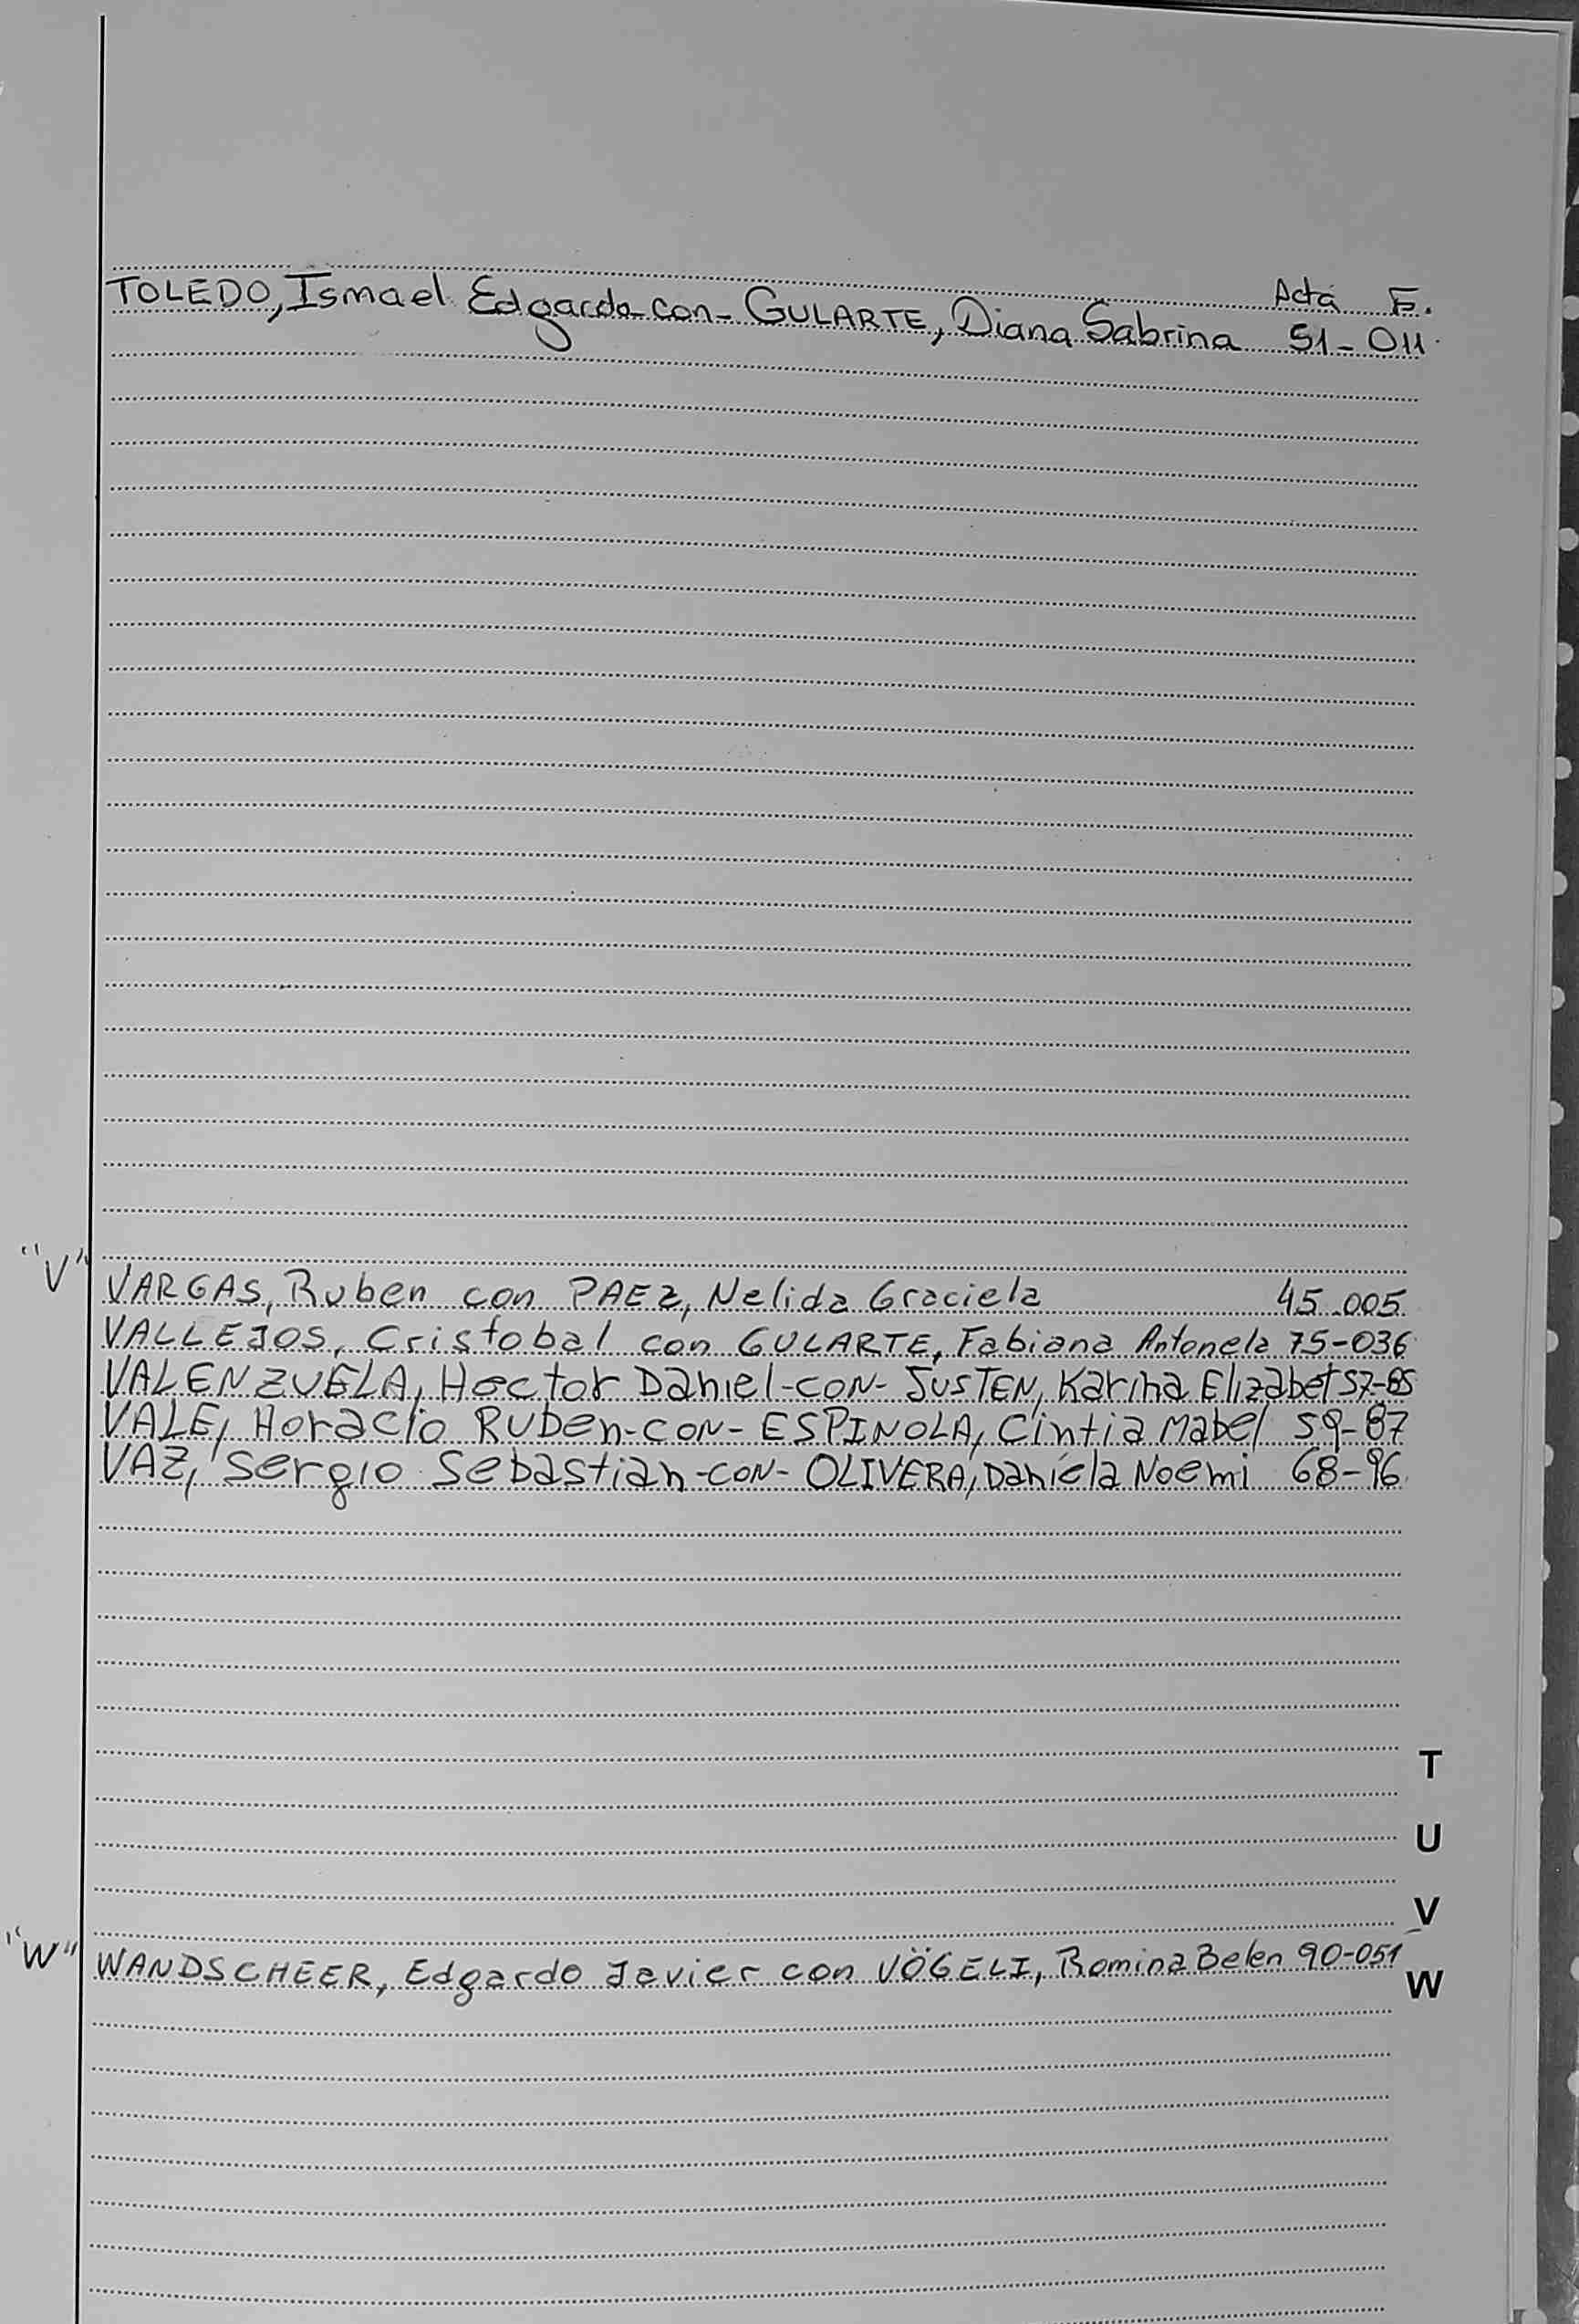 Acta F.
TOLEDO, Ismael Edgardo-con-GULARTE, Diana Sabrina 51-011
"V" VARGAS, Ruben con PAEZ, Nelida Graciela 45 005
VALLEJOS, Cristobal con GULARTE, Fabiana Antonela 75-036
VALENZUELA, Hector Daniel-CON-JUSTEN, Karina Elizabet 57-85
VALE, Horacio Ruben-CON-ESPINOLA, Cintia Mabel 59-87
VAZ, Sergio Sebastian-CON-OLIVERA, Daniela Noemi 68-96
T
U
V
"W" WANDSCHEER, Edgardo Javier con VÖGELI, Romina Belen 90-051
W